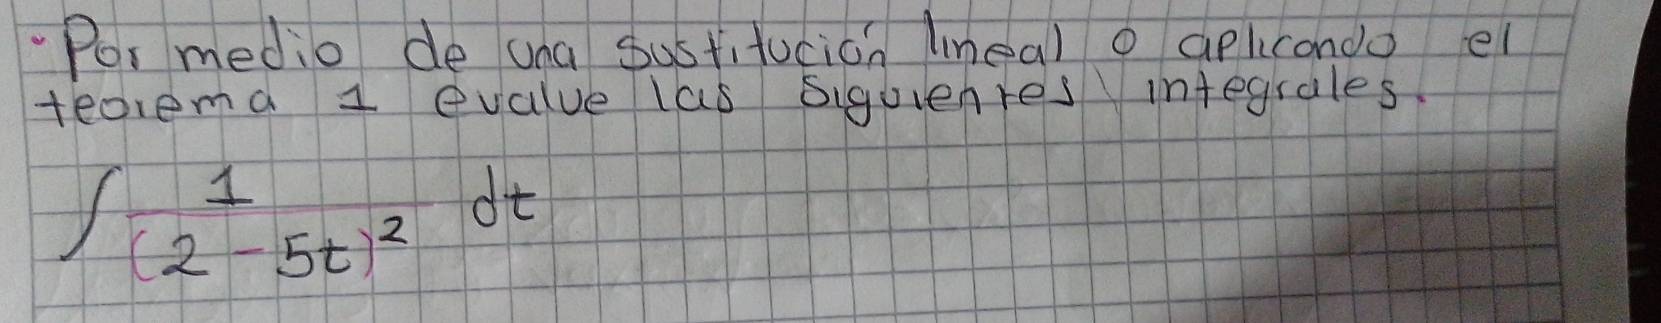 • Por medio de una sustitución lineal o aplicando el
teorema 1 evalue las siguientes integrales.
∫ 1/(2 - 5t)² dt